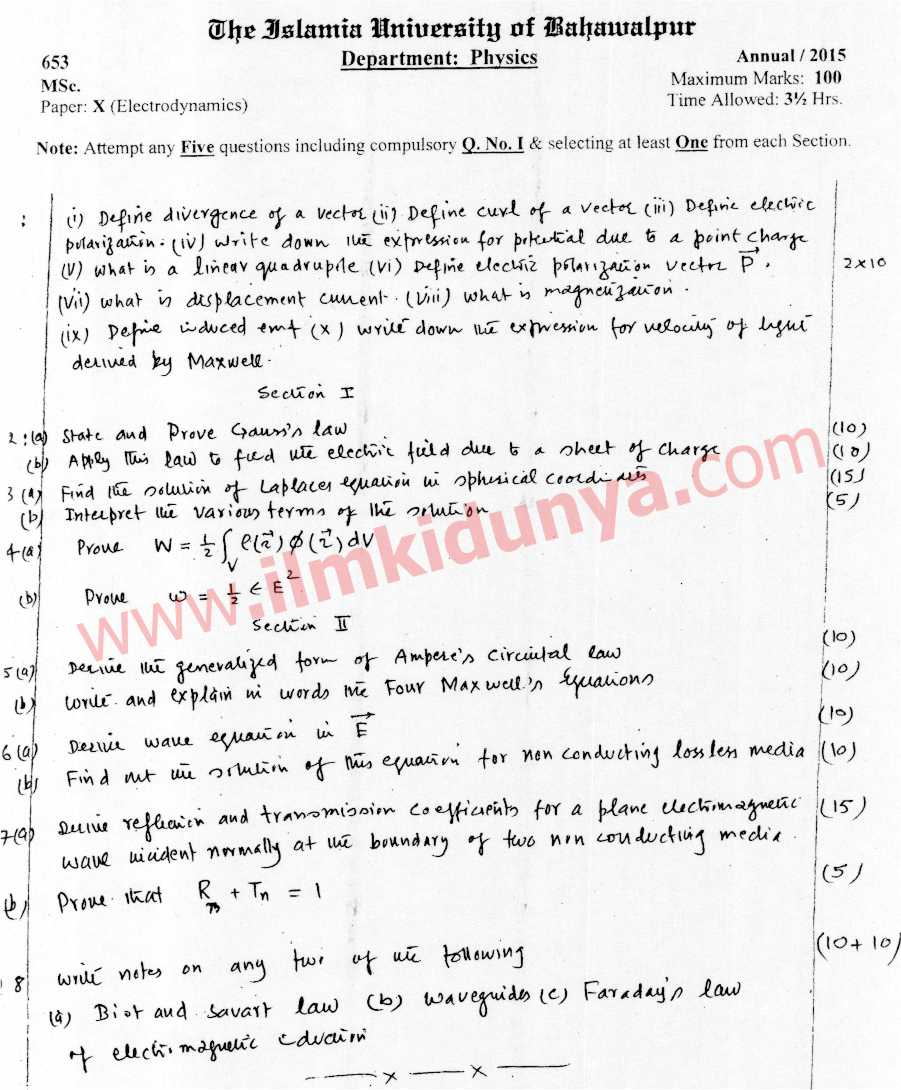 The Islamia University of Bahawalpur
653 Department: Physics Annual / 2015
MSc. Maximum Marks: 100
Paper: X (Electrodynamics) Time Allowed: 3½ Hrs.
Note: Attempt any Five questions including compulsory Q. No. I & selecting at least One from each Section.
: (i) Define divergence of a vector (ii) Define curl of a vector (iii) Define electric
polarization. (iv) Write down the expression for potential due to a point charge
(v) what is a linear quadrupole (vi) Define electric polarization vector P⃗. 2×10
(vii) what is displacement current. (viii) what is magnetization.
(ix) Define induced emf (x) write down the expression for velocity of light
derived by Maxwell.
Section I
2:(a) State and Prove Gauss's law (10)
(b) Apply this law to find the electric field due to a sheet of charge (10)
3 (a) Find the solution of Laplaces equation in spherical coordinates (15)
(b) Interpret the various terms of the solution (5)
4 (a) Prove W = ½ ∫V ρ(r⃗) φ(r⃗) dV
(b) Prove w = ½ ∈ E²
www.ilmkidunya.com
Section II
5 (a) Derive the generalized form of Ampere's Circuital law (10)
(b) Write and explain in words the Four Maxwell's Equations (10)
6 (a) Derive wave equation in E⃗ (10)
(b) Find out the solution of this equation for non conducting lossless media (10)
7 (a) Derive reflection and transmission coefficients for a plane electromagnetic (15)
wave incident normally at the boundary of two non conducting media.
(b) Prove that Rn + Tn = 1 (5)
8 Write notes on any two of the following (10 + 10)
(a) Biot and Savart law (b) Waveguides (c) Faraday's law
of electromagnetic eduction
x x